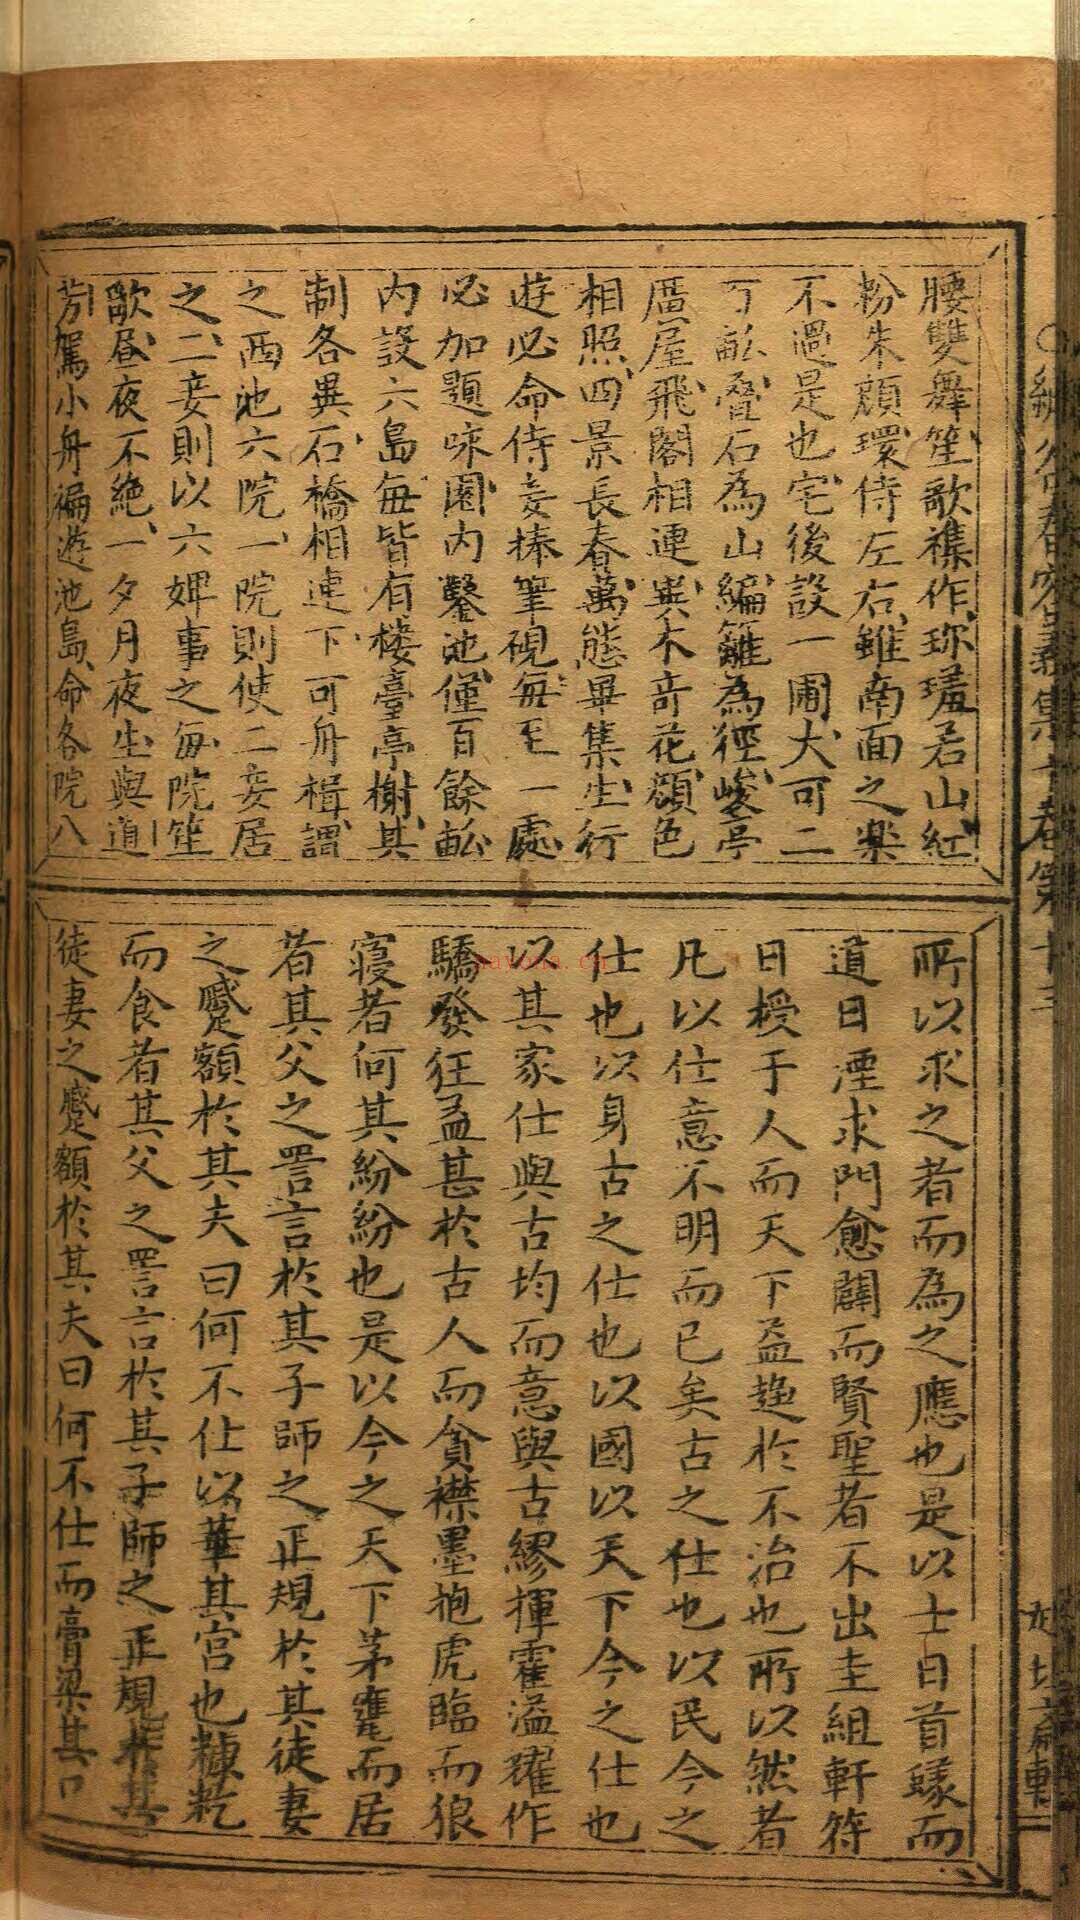 腰雙舞笙歌襍作珎羞若山紅
粉朱顔環侍左右雖南面之樂
不過是也宅後設一圃大可二
丁畝叠石為山編籬為徑峻亭
廣屋飛閣相連異木奇花顔色
相照四景長春萬態畢集生行
遊必命侍妾捧筆硯每至一處
必加題咏園内鑿池僅百餘畝
内設六島每皆有楼臺亭榭其
制各異石橋相連下可舟楫謂
之西池六院一院則使二妾居
之二妾則以六婢事之每院笙
歌昼夜不絶一夕月夜生與道
芳駕小舟徧遊池島命各院八
所以求之者而為之應也是以士日首蠓而
道日湮求門愈闢而賢聖者不出圭組軒符
日授于人而天下益趍於不治也所以然者
凡以仕意不明而已矣古之仕也以民今之
仕也以身古之仕也以國以天下今之仕也
以其家仕與古均而意與古繆揮霍溢耀作
驕發狂孟甚於古人而貪襟墨抱虎臨而狼
寝者何其紛紛也是以今之天下茅窰而居
者其父之詈言於其子師之正規於其徒妻
之蹙額於其夫曰何不仕以華其宫也糠籺
而食者其父之詈言於其子師之正規於其
徒妻之蹙額於其夫曰何不仕而膏粱其口
卷第十三